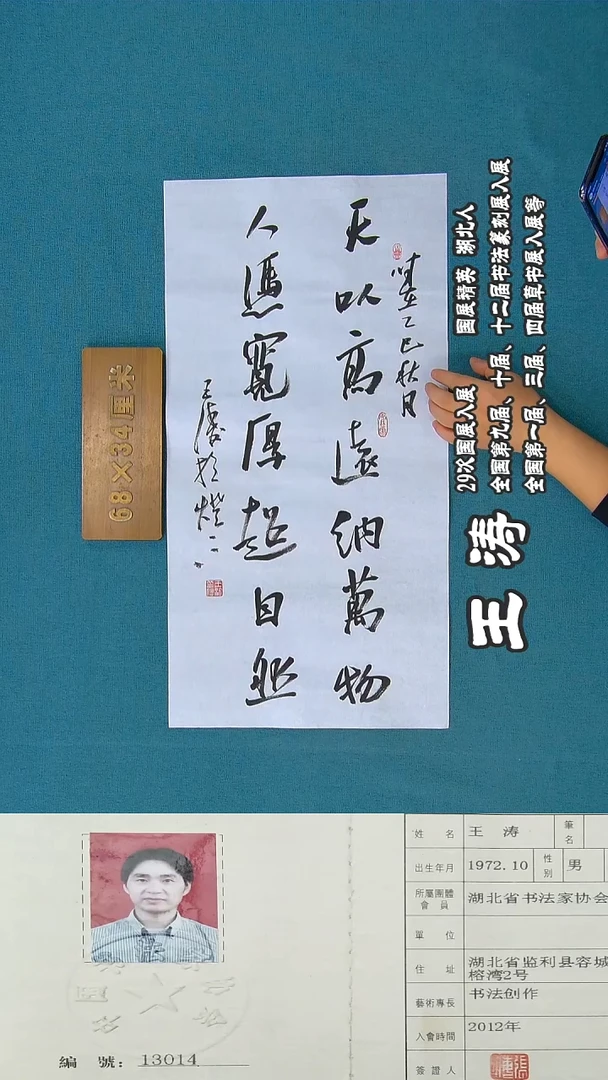 時在乙巳秋月
天以高遠納萬物
人憑寬厚超自然
王濤於燈
68×34厘米
王涛
29次国展入展 国展精英 湖北人
全国第九届、十届、十二届书法篆刻展入展
全国第一届、三届、四届草书展入展等
編 號：13014
姓 名 王 涛 筆名
出生年月 1972.10 性別 男
所屬團體會員 湖北省书法家协会
單 位
住 址 湖北省监利县容城
榕湾2号
藝術專長 书法创作
入會時間 2012年
簽證人